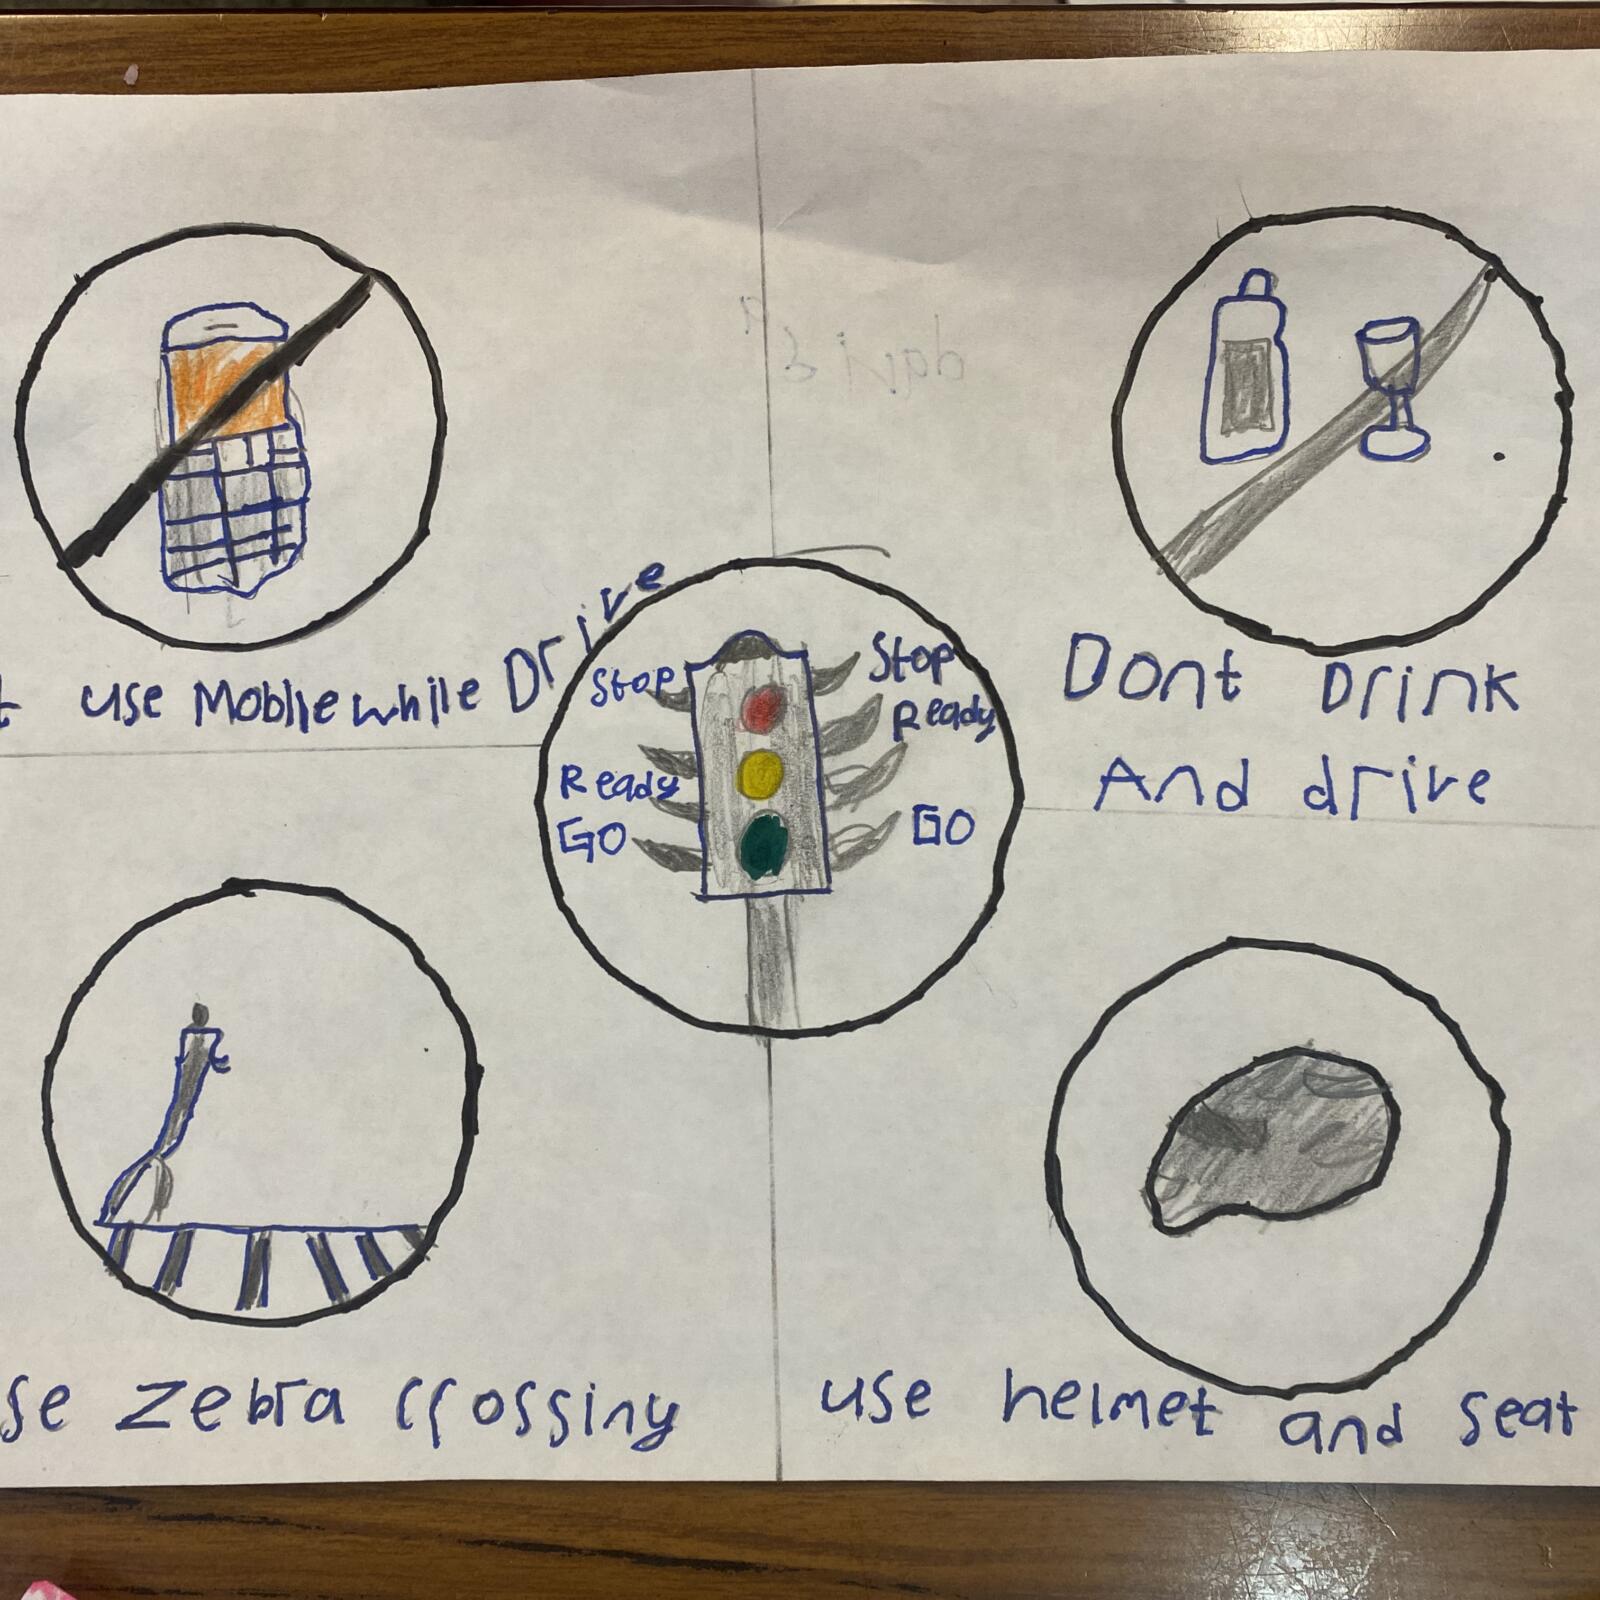 use Moblie while Drive
Stop
Ready
GO
Stop
Ready
GO
Dont Drink
And drive
se zebra crossing
use helmet and seat